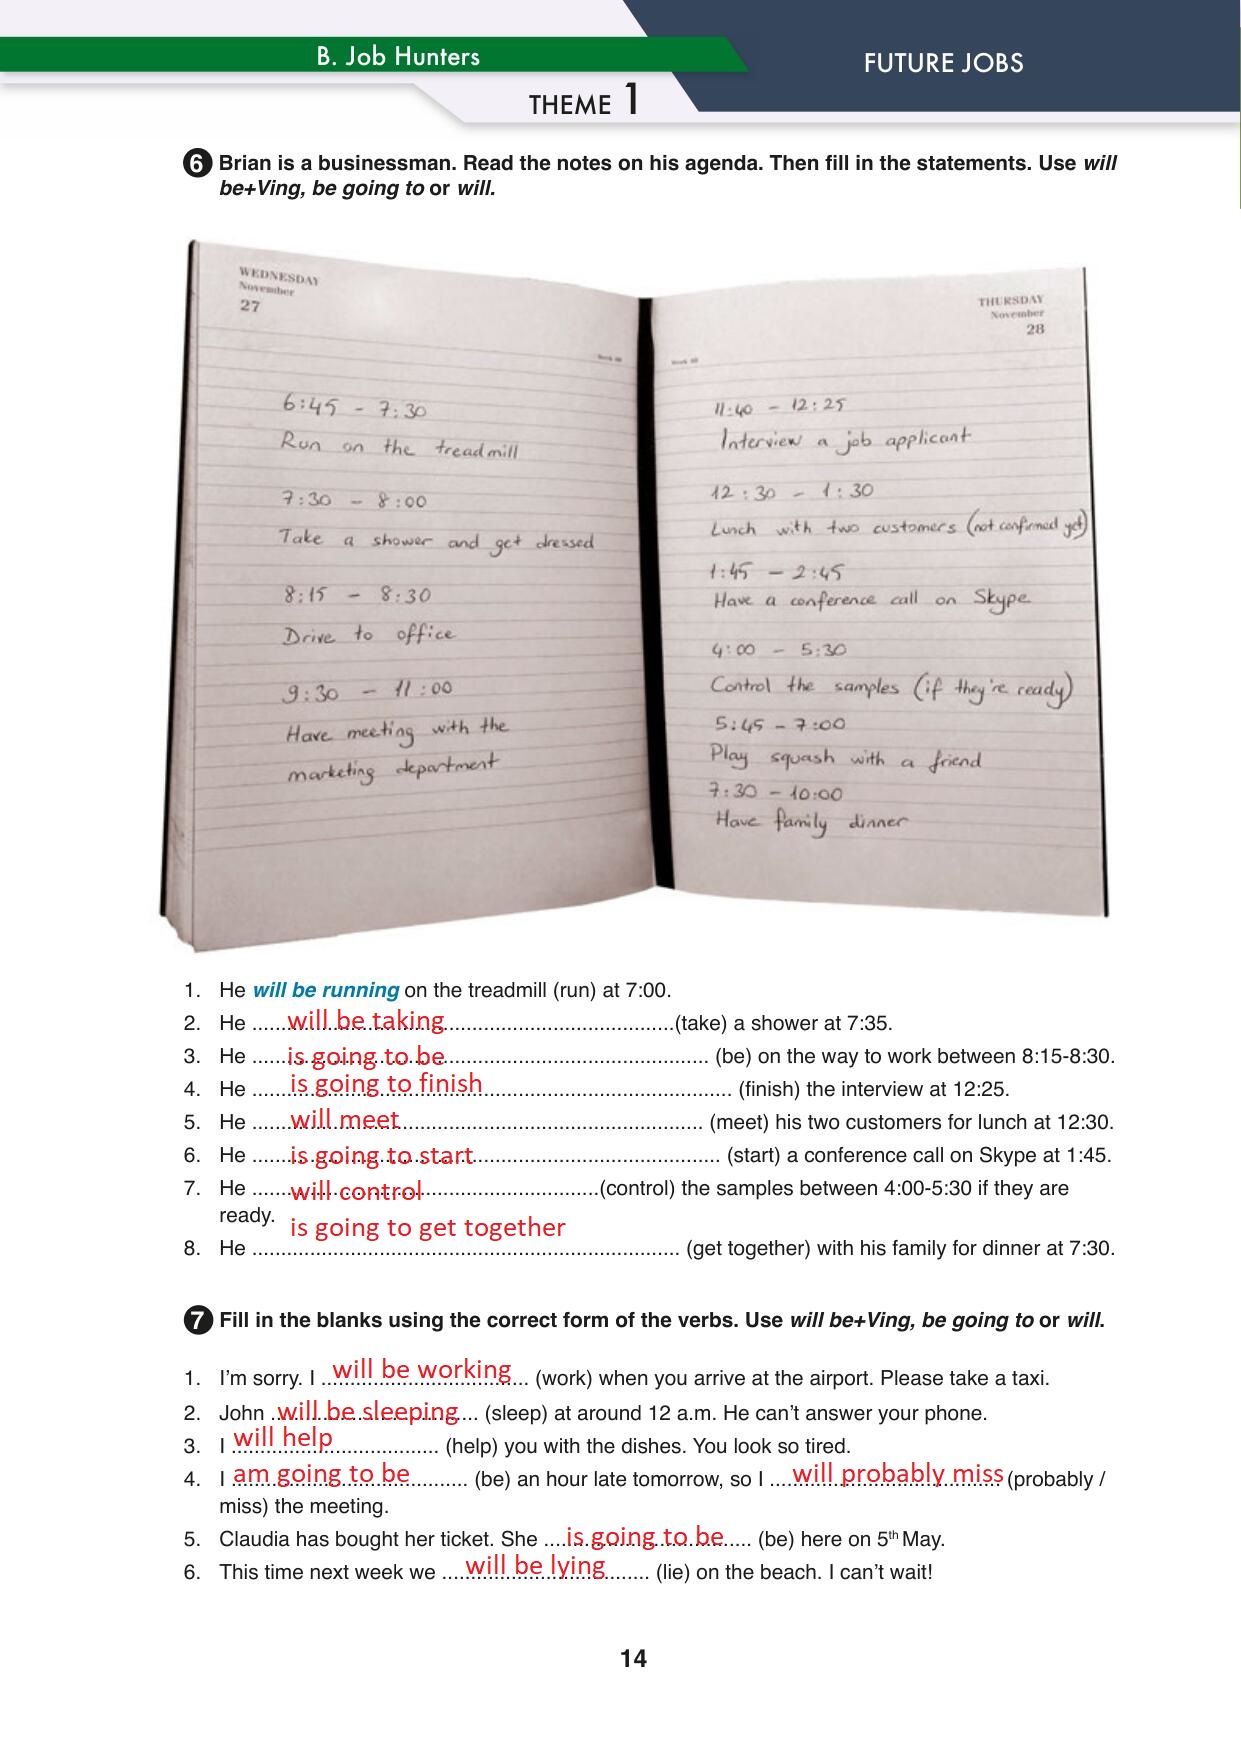 B. Job Hunters
FUTURE JOBS
THEME 1
6 Brian is a businessman. Read the notes on his agenda. Then fill in the statements. Use will
be+Ving, be going to or will.
WEDNESDAY
November
27
6:45 - 7:30
Run on the treadmill
7:30 - 8:00
Take a shower and get dressed
8:15 - 8:30
Drive to office
9:30 - 11:00
Have meeting with the
marketing department
THURSDAY
November
28
11:40 - 12:25
Interview a job applicant
12:30 - 1:30
Lunch with two customers (not confirmed yet)
1:45 - 2:45
Have a conference call on Skype
4:00 - 5:30
Control the samples (if they're ready)
5:45 - 7:00
Play squash with a friend
7:30 - 10:00
Have family dinner
1. He will be running on the treadmill (run) at 7:00.
2. He will be taking (take) a shower at 7:35.
3. He is going to be (be) on the way to work between 8:15-8:30.
4. He is going to finish (finish) the interview at 12:25.
5. He will meet (meet) his two customers for lunch at 12:30.
6. He is going to start (start) a conference call on Skype at 1:45.
7. He will control (control) the samples between 4:00-5:30 if they are
ready.
is going to get together
8. He (get together) with his family for dinner at 7:30.
7 Fill in the blanks using the correct form of the verbs. Use will be+Ving, be going to or will.
1. I'm sorry. I will be working (work) when you arrive at the airport. Please take a taxi.
2. John will be sleeping (sleep) at around 12 a.m. He can't answer your phone.
3. I will help (help) you with the dishes. You look so tired.
4. I am going to be (be) an hour late tomorrow, so I will probably miss (probably /
miss) the meeting.
5. Claudia has bought her ticket. She is going to be (be) here on 5th May.
6. This time next week we will be lying (lie) on the beach. I can't wait!
14